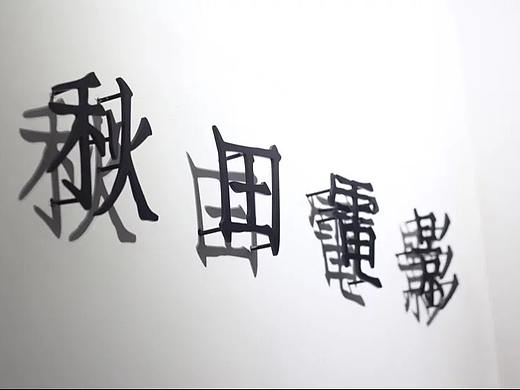 秋田電影